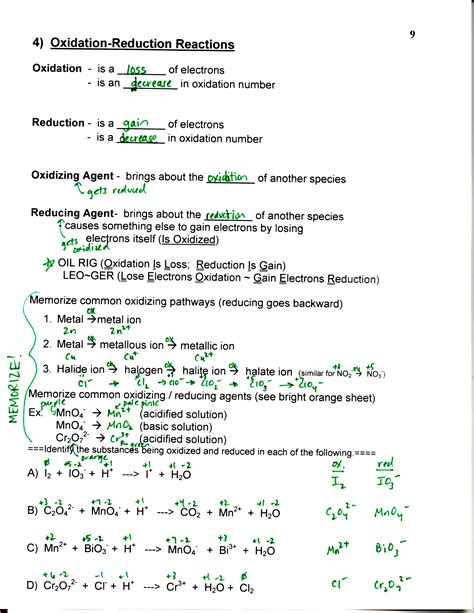 9
4) Oxidation-Reduction Reactions
Oxidation - is a loss of electrons
- is an decrease in oxidation number
Reduction - is a gain of electrons
- is a decrease in oxidation number
Oxidizing Agent - brings about the oxidation of another species
gets reduced
Reducing Agent- brings about the reduction of another species
causes something else to gain electrons by losing
gets oxidized electrons itself (Is Oxidized)
OIL RIG (Oxidation Is Loss; Reduction Is Gain)
LEO~GER (Lose Electrons Oxidation ~ Gain Electrons Reduction)
MEMORIZE!
Memorize common oxidizing pathways (reducing goes backward)
ox
1. Metal → metal ion
Zn Zn²⁺
ox ox
2. Metal → metallous ion → metallic ion
Cu Cu⁺ Cu²⁺
ox ox ox +3 ox +5
3. Halide ion → halogen → halite ion → halate ion (similar for NO₂⁻ → NO₃⁻)
Cl⁻ → Cl₂ → ClO⁻ → ClO₂⁻ → ClO₃⁻ → ClO₄⁻
Memorize common oxidizing / reducing agents (see bright orange sheet)
purple pale pink
Ex. MnO₄⁻ → Mn²⁺ (acidified solution)
MnO₄⁻ → MnO₂ (basic solution)
Cr₂O₇²⁻ → Cr³⁺ (acidified solution)
orange green
===Identify the substances being oxidized and reduced in each of the following.====
ox. red
+5 -2 +1 +1 +1 -2
A) I₂ + IO₃⁻ + H⁺ ---> I⁺ + H₂O I₂ IO₃⁻
+3 -2 +7 -2 +1 +4 -2 +2 +1 -2
B) C₂O₄²⁻ + MnO₄⁻ + H⁺ ---> CO₂ + Mn²⁺ + H₂O C₂O₄²⁻ MnO₄⁻
+2 +5 -2 +1 +7 -2 +3 +1 -2
C) Mn²⁺ + BiO₃⁻ + H⁺ ---> MnO₄⁻ + Bi³⁺ + H₂O Mn²⁺ BiO₃⁻
+6 -2 -1 +1 +3 +1 -2 0
D) Cr₂O₇²⁻ + Cl⁻ + H⁺ ---> Cr³⁺ + H₂O + Cl₂ Cl⁻ Cr₂O₇²⁻